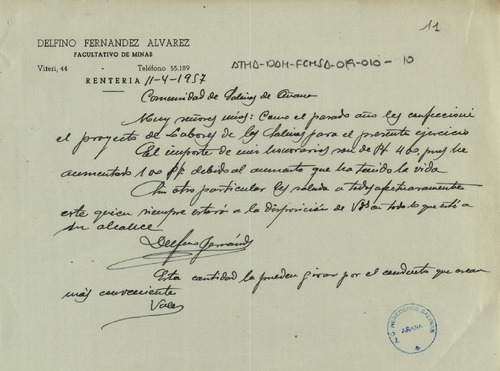 11
DELFINO FERNANDEZ ALVAREZ
FACULTATIVO DE MINAS
Viteri, 44 Teléfono 55.189
ATHA-DAH-FCHSA-019-010-10
RENTERIA 11-4-1957
Comunidad de Salinas de Añana
Muy señores mios: Como el pasado año les confeccioné
el proyecto de Labores de las Salinas para el presente ejercicio
El importe de mis honorarios son de 400, pues he
aumentado 100 debido al aumento que ha tenido la vida
Sin otro particular les saluda a todos afectuosamente
este quien siempre estará a la disposición de Vds en todo lo que esté a
su alcance
Delfino Fernández
Esta cantidad la pueden girar por el conducto que crean
más conveniente
Vale
HEREDEROS SALINAS
AÑANA